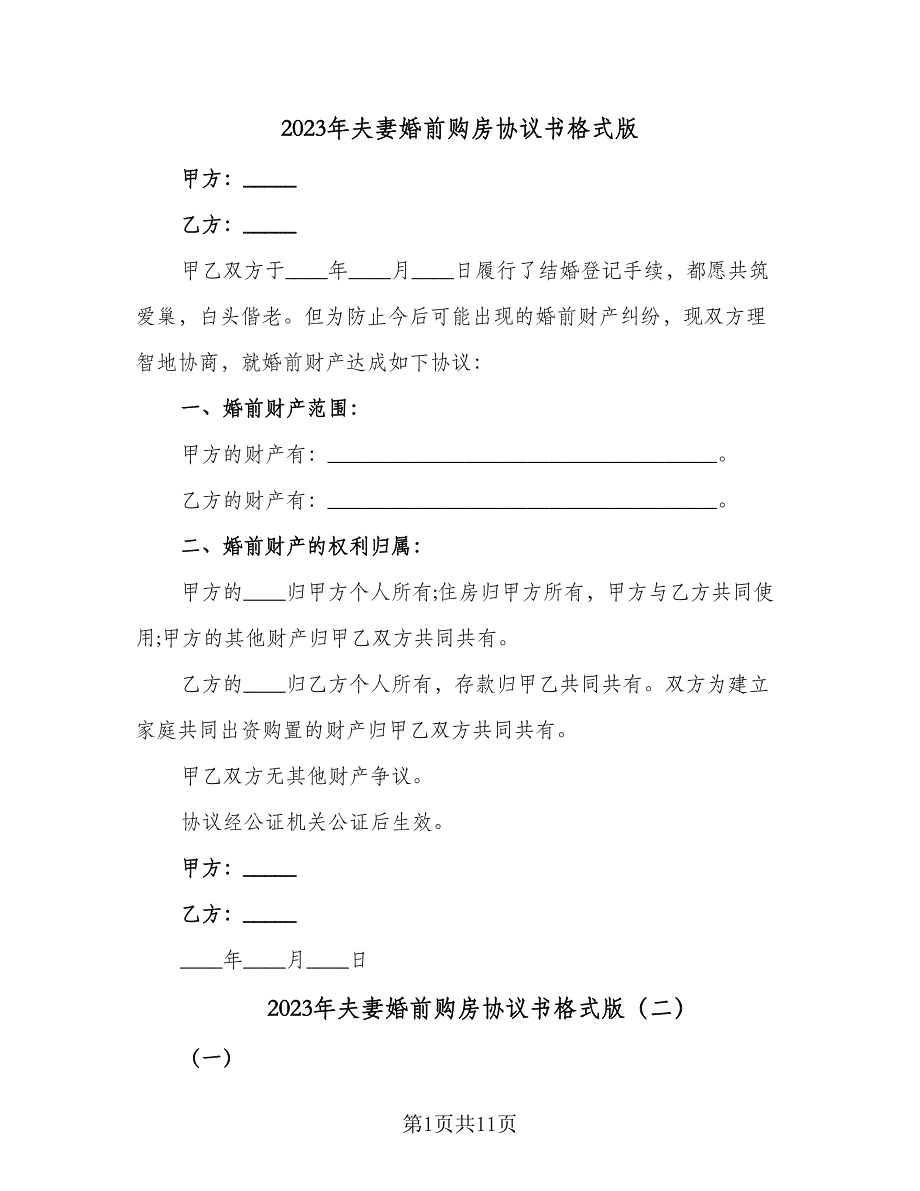 2023年夫妻婚前购房协议书格式版
甲方：_____
乙方：_____
甲乙双方于____年____月____日履行了结婚登记手续，都愿共筑
爱巢，白头偕老。但为防止今后可能出现的婚前财产纠纷，现双方理
智地协商，就婚前财产达成如下协议：
一、婚前财产范围：
甲方的财产有：_____________________________________。
乙方的财产有：_____________________________________。
二、婚前财产的权利归属：
甲方的____归甲方个人所有;住房归甲方所有，甲方与乙方共同使
用;甲方的其他财产归甲乙双方共同共有。
乙方的____归乙方个人所有，存款归甲乙共同共有。双方为建立
家庭共同出资购置的财产归甲乙双方共同共有。
甲乙双方无其他财产争议。
协议经公证机关公证后生效。
甲方：_____
乙方：_____
____年____月____日
2023年夫妻婚前购房协议书格式版（二）
（一）
第1页共11页